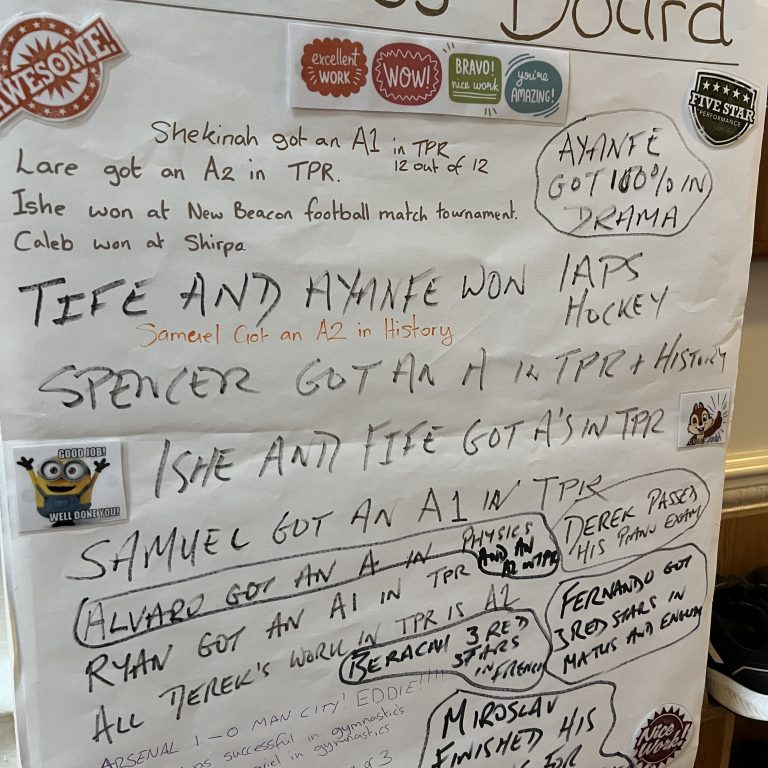 Board
AWESOME!
excellent WORK
WOW!
BRAVO! nice work
you're AMAZING!
FIVE STAR
PERFORMANCE
Shekinah got an A1 in TPR
12 out of 12
Lare got an A2 in TPR.
Ishe won at New Beacon football match tournament.
Caleb won at Shirpa
AYANFE
GOT 100% IN
DRAMA
TIFE AND AYANFE WON IAPS
HOCKEY
Samuel Got an A2 in History
SPENCER GOT AN A IN TPR + HISTORY
ISHE AND FIFE GOT A'S IN TPR
GOOD JOB!
WELL DONE YOU!
SAMUEL GOT AN A1 IN TPR
DEREK PASSED
HIS PIANO EXAM
ALVARO GOT AN A IN PHYSICS
AND AN
A2 IN TPR
RYAN GOT AN A1 IN TPR
FERNANDO GOT
3 RED STARS IN
MATHS AND ENGLISH
ALL DEREK'S WORK IN TPR IS A2
BERACAH 3 RED
STARS
IN FRENCH
ARSENAL 1-0 MAN CITY! EDDIE!!!!
successful in gymnastics
in gymnastics
of 3
MIROSLAV
FINISHED HIS
FOR
Nice Work!